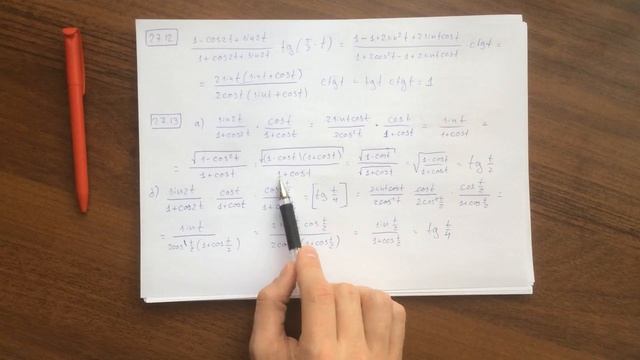 27.12 (1-cos2t+sin2t)/(1+cos2t+sin2t) · tg(π/2 - t) = (1-1+2sin²t+2sintcost)/(1+2cos²t-1+2sintcost) · ctgt =
= 2sint(sint+cost)/2cost(sint+cost) ctgt = tgt ctgt = 1
27.13 а) sin2t/(1+cos2t) · cost/(1+cost) = 2sintcost/2cos²t · cost/(1+cost) = sint/(1+cost) =
= √(1-cos²t)/(1+cost) = √((1-cost)(1+cost))/(1+cost) = √(1-cost)/√(1+cost) = √((1-cost)/(1+cost)) = tg t/2
б) sin2t/(1+cos2t) · cost/(1+cost) · = [tg t/4] = 2sintcost/2cos²t · cost/2cos²t/2 · cos t/2/(1+cos t/2) =
= sint/2cos t/2(1+cos t/2) = = sin t/2/(1+cos t/2) = tg t/4